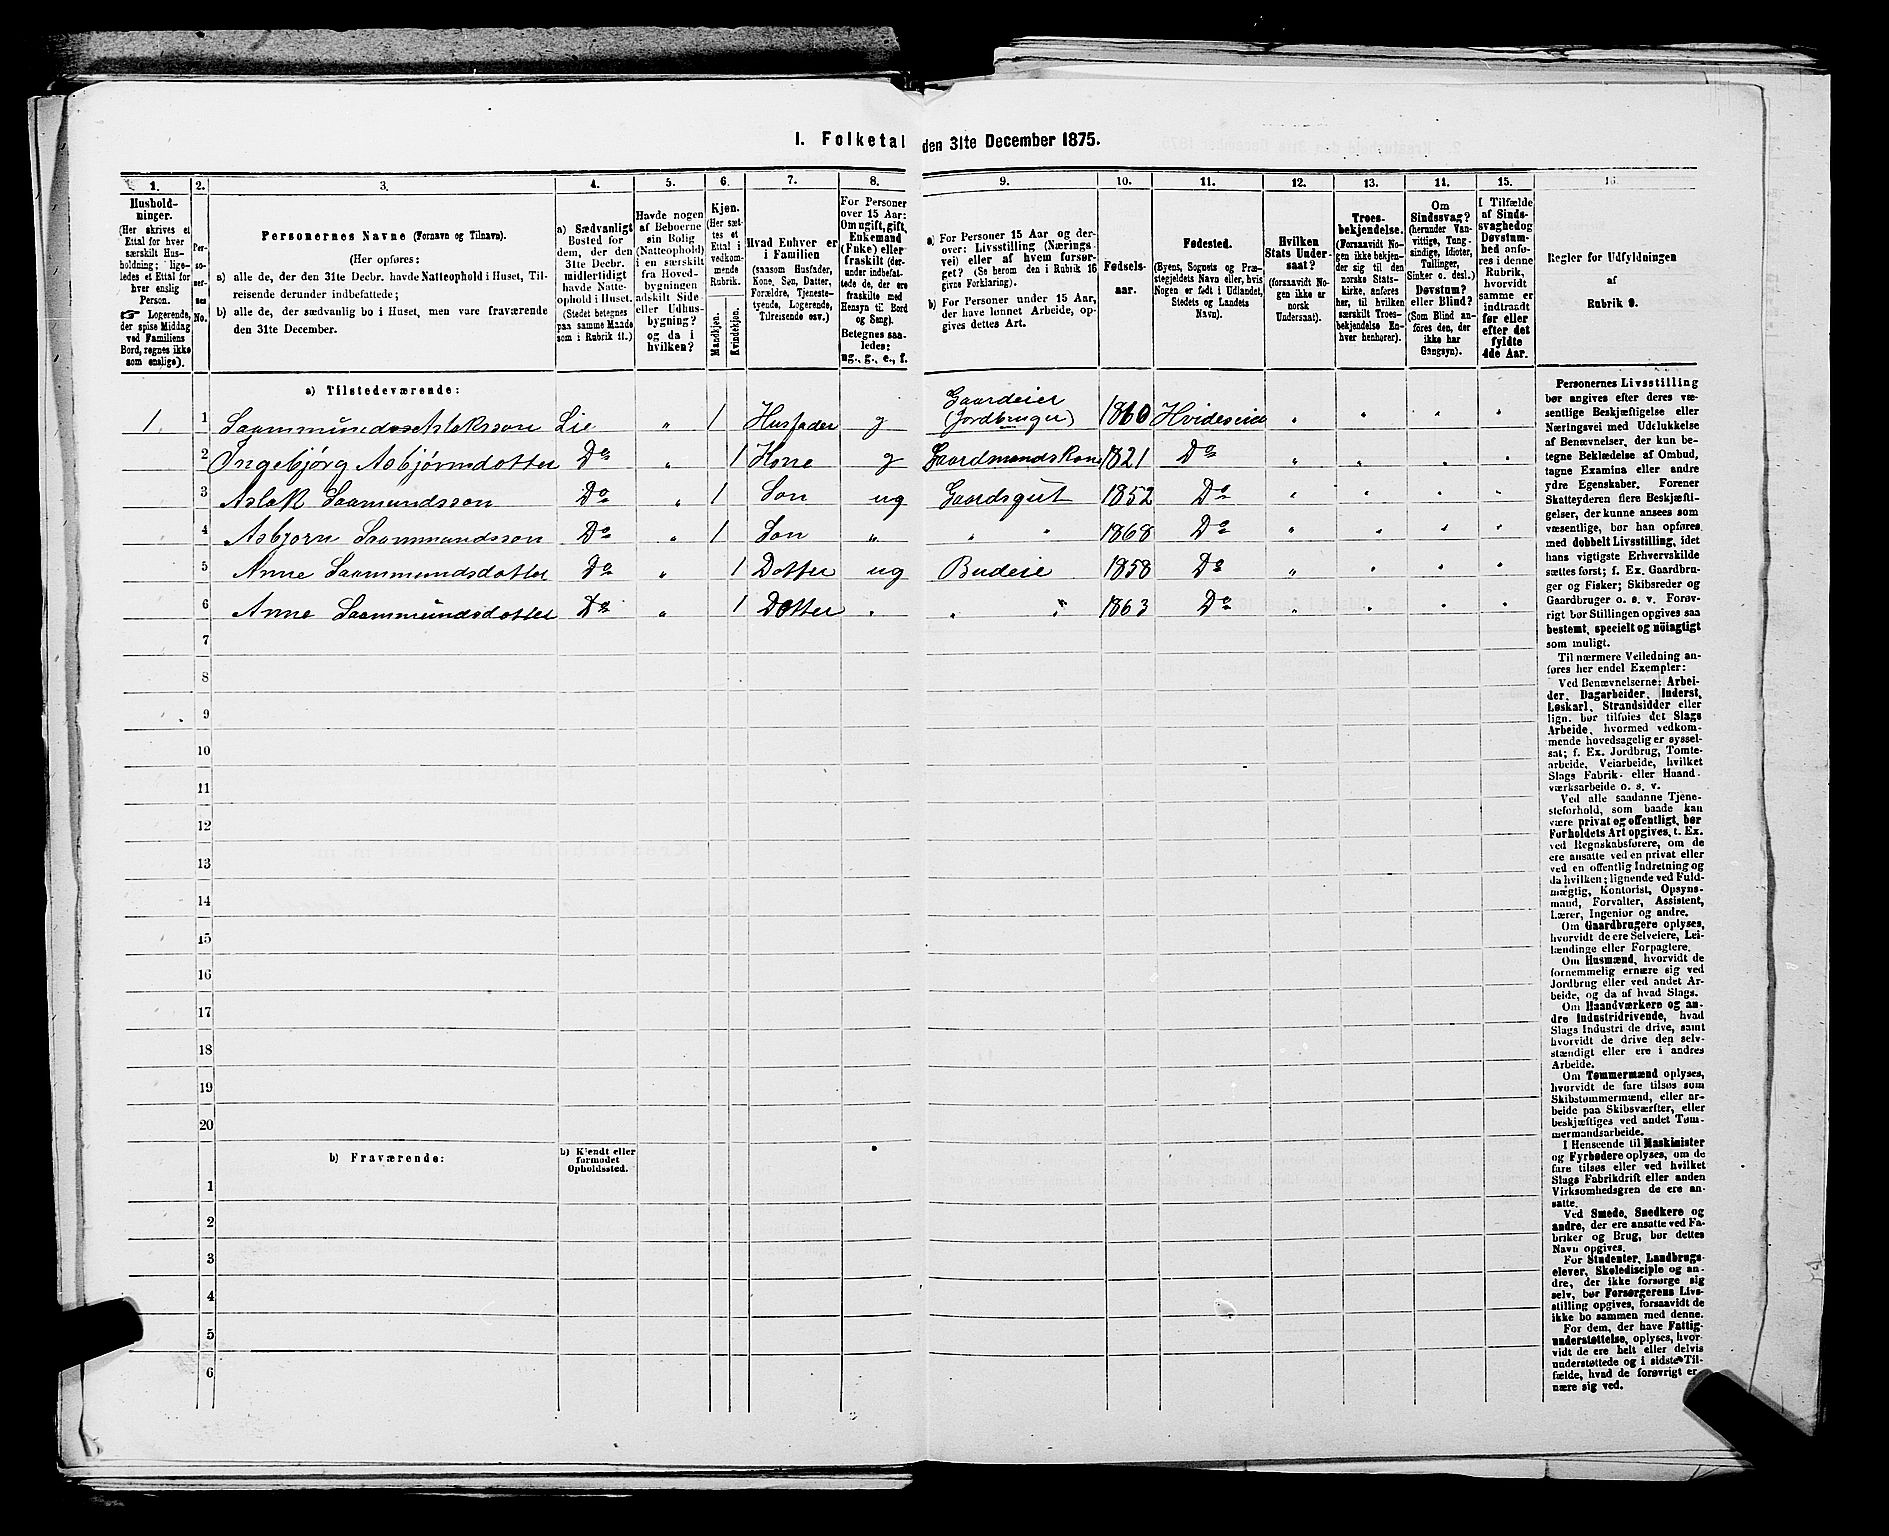 I. Folketal den 31te December 1875.
1. 2. 3. 4. 5. 6. 7. 8. 9. 10. 11. 12. 13. 14. 15. 16.
Husholdninger.
(Her skrives et Ettal for hver særskilt Husholdning; ligeledes et Ettal for hver enslig Person.
☞ Logerende, der spise Middag ved Familiens Bord, regnes ikke som enslige).
Personernes No.
Personernes Navne (Fornavn og Tilnavn).
(Her opføres:
a) alle de, der den 31te Decbr. havde Natteophold i Huset, Tilreisende derunder indbefattede;
b) alle de, der sædvanlig bo i Huset, men vare fraværende den 31te December.
a) Sædvanligt Bosted for dem, der den 31te Decbr. midlertidigt havde Natteophold i Huset. (Stedet betegnes paa samme Maade som i Rubrik 11.)
Havde nogen af Beboerne sin Bolig (Natteophold) i en særskilt fra Hovedbygningen adskilt Side- eller Udhusbygning? og da i hvilken?
Kjøn.
(Her sættes et Ettal i vedkommende Rubrik.
Mandkjøn. Kvindekjøn.
Hvad Enhver er i Familien
(saasom Husfader, Kone, Søn, Datter, Forældre, Tjenestetyende, Logerende, Tilreisende osv.)
For Personer over 15 Aar: Om ugift, gift, Enkemand (Enke) eller fraskilt (derunder indbefattede de, der ere fraskilte med Hensyn til Bord og Seng).
Betegnes saaledes:
ug., g., e., f.
a) For Personer 15 Aar og derover: Livsstilling (Næringsvei) eller af hvem forsørget? (Se herom den i Rubrik 16 givne Forklaring).
b) For Personer under 15 Aar, der have lønnet Arbeide, opgives dettes Art.
Fødselsaar.
Fødested.
(Byens, Sognets og Præstegjeldets Navn eller, hvis Nogen er født i Udlandet, Stedets og Landets Navn).
Hvilken Stats Undersaat?
(forsaavidt Nogen ikke er norsk Undersaat).
Troesbekjendelse.
(Forsaavidt Nogen ikke bekjender sig til den norske Statskirke, anføres her, til hvilken særskilt Troesbekjendelse Enhver henhører).
Om Sindssvag? (herunder Vanvittige, Tungsindige, Idioter, Tullinger, Sinker o. desl.) Døvstum? eller Blind? (Som Blind anføres den, der ikke har Gangsyn).
I Tilfælde af Sindssvaghed og Døvstumhed anføres i denne Rubrik, hvorvidt samme er indtraadt før eller efter det fyldte 4de Aar.
Regler for Udfyldningen
af
Rubrik 9.
a) Tilstedeværende:
1. 1 Saammund Aslaksson Lie " 1 Husfader g Gaardeier (Jordbruger) 1860 Hvideseid " " " "
2 Ingebjørg Asbjørnsdotter Do " 1 Kone g Gaardmandskone 1821 Do " " " "
3 Aslak Saamundsson Do " 1 Son ug Gaardsgut 1852 Do " " " "
4 Asbjorn Saammundsson Do " 1 Son " " " 1868 Do " " " "
5 Anne Saammundsdotter Do " 1 Dotter ug Budeie 1858 Do " " " "
6 Anne Saammundsdotter Do " 1 Dotter " " " 1863 Do " " " "
7
8
9
10
11
12
13
14
15
16
17
18
19
20
b) Fraværende:
b) Kjendt eller formodet Opholdssted.
1
2
3
4
5
6
Personernes Livsstilling
bør angives efter deres væ-
sentlige Beskjæftigelse eller
Næringsvei med Udelukkelse
af Benævnelser, der kun be-
tegne Beklædelse af Ombud,
tagne Examina eller andre
ydre Egenskaber. Forener
Skatteyderen flere Beskjæfti-
gelser, der kunne ansees som
væsentlige, bør han opføres
med dobbelt Livsstilling, idet
hans vigtigste Erhvervskilde
sættes først; f. Ex. Gaardbru-
ger og Fisker; Skibsreder og
Gaardbruger o. s. v. Forøv-
rigt bør Stillingen opgives saa
bestemt, specielt og nöiagtigt
som muligt.
Til nærmere Veiledning an-
føres her endel Exempler:
Ved Benævnelserne: Arbei-
der, Dagarbeider, Inderst,
Løskarl, Strandsidder eller
lign. bør tilføies det Slags
Arbeide, hvormed vedkom-
mende hovedsagelig er syssel-
sat; f. Ex. Jordbrug, Tomte-
arbeide, Veiarbeide, hvilket
Slags Fabrik- eller Haand-
værksarbeide o. s. v.
Ved alle saadanne Tjene-
steforhold, som baade kan
være privat og offentligt, bør
Forholdets Art opgives, t. Ex.
ved Regnskabsførere, om de
ere ansatte ved en privat eller
ved en offentlig Indretning og
da hvilken; lignende ved Fuld-
mægtig, Kontorist, Opsyns-
mand, Forvalter, Assistent,
Lærer, Ingeniør og andre.
Om Gaardbrugere oplyses,
hvorvidt de ere Selveiere, Lei-
lændinge eller Forpagtere.
Om Husmænd, hvorvidt de
fornemmelig ernære sig ved
Jordbrug eller ved andet Ar-
beide, og da af hvad Slags.
Om Haandværkere og an-
dre Industridrivende, hvad
Slags Industri de drive, samt
hvorvidt de drive den selv-
stændigt eller ere i andres
Arbeide.
Om Tømmermænd oplyses,
hvorvidt de fare tilsøs som
Skibstømmermænd, eller ar-
beide paa Skibsværfter, eller
beskjæftiges ved andet Tøm-
mermandsarbeide.
I Henseende til Maskinister
og Fyrbødere oplyses, om de
fare tilsøs eller ved hvilket
Slags Fabrikdrift eller anden
Virksomhedsgren de ere an-
satte.
Ved Smede, Snedkere og
andre, der ere ansatte ved Fa-
briker og Brug, bør dettes
Navn opgives.
For Studenter, Landbrugs-
elever, Skoledisciple og an-
dre, der ikke forsørge sig
selv, bør Forsørgerens Livs-
stilling opgives, forsaavidt de
ikke bo sammen med denne.
For dem, der have Fattig-
understøttelse, oplyses, hvor-
vidt de ere helt eller delvis
understøttede og i sidste Til-
fælde, hvad de forøvrigt er-
nære sig ved.